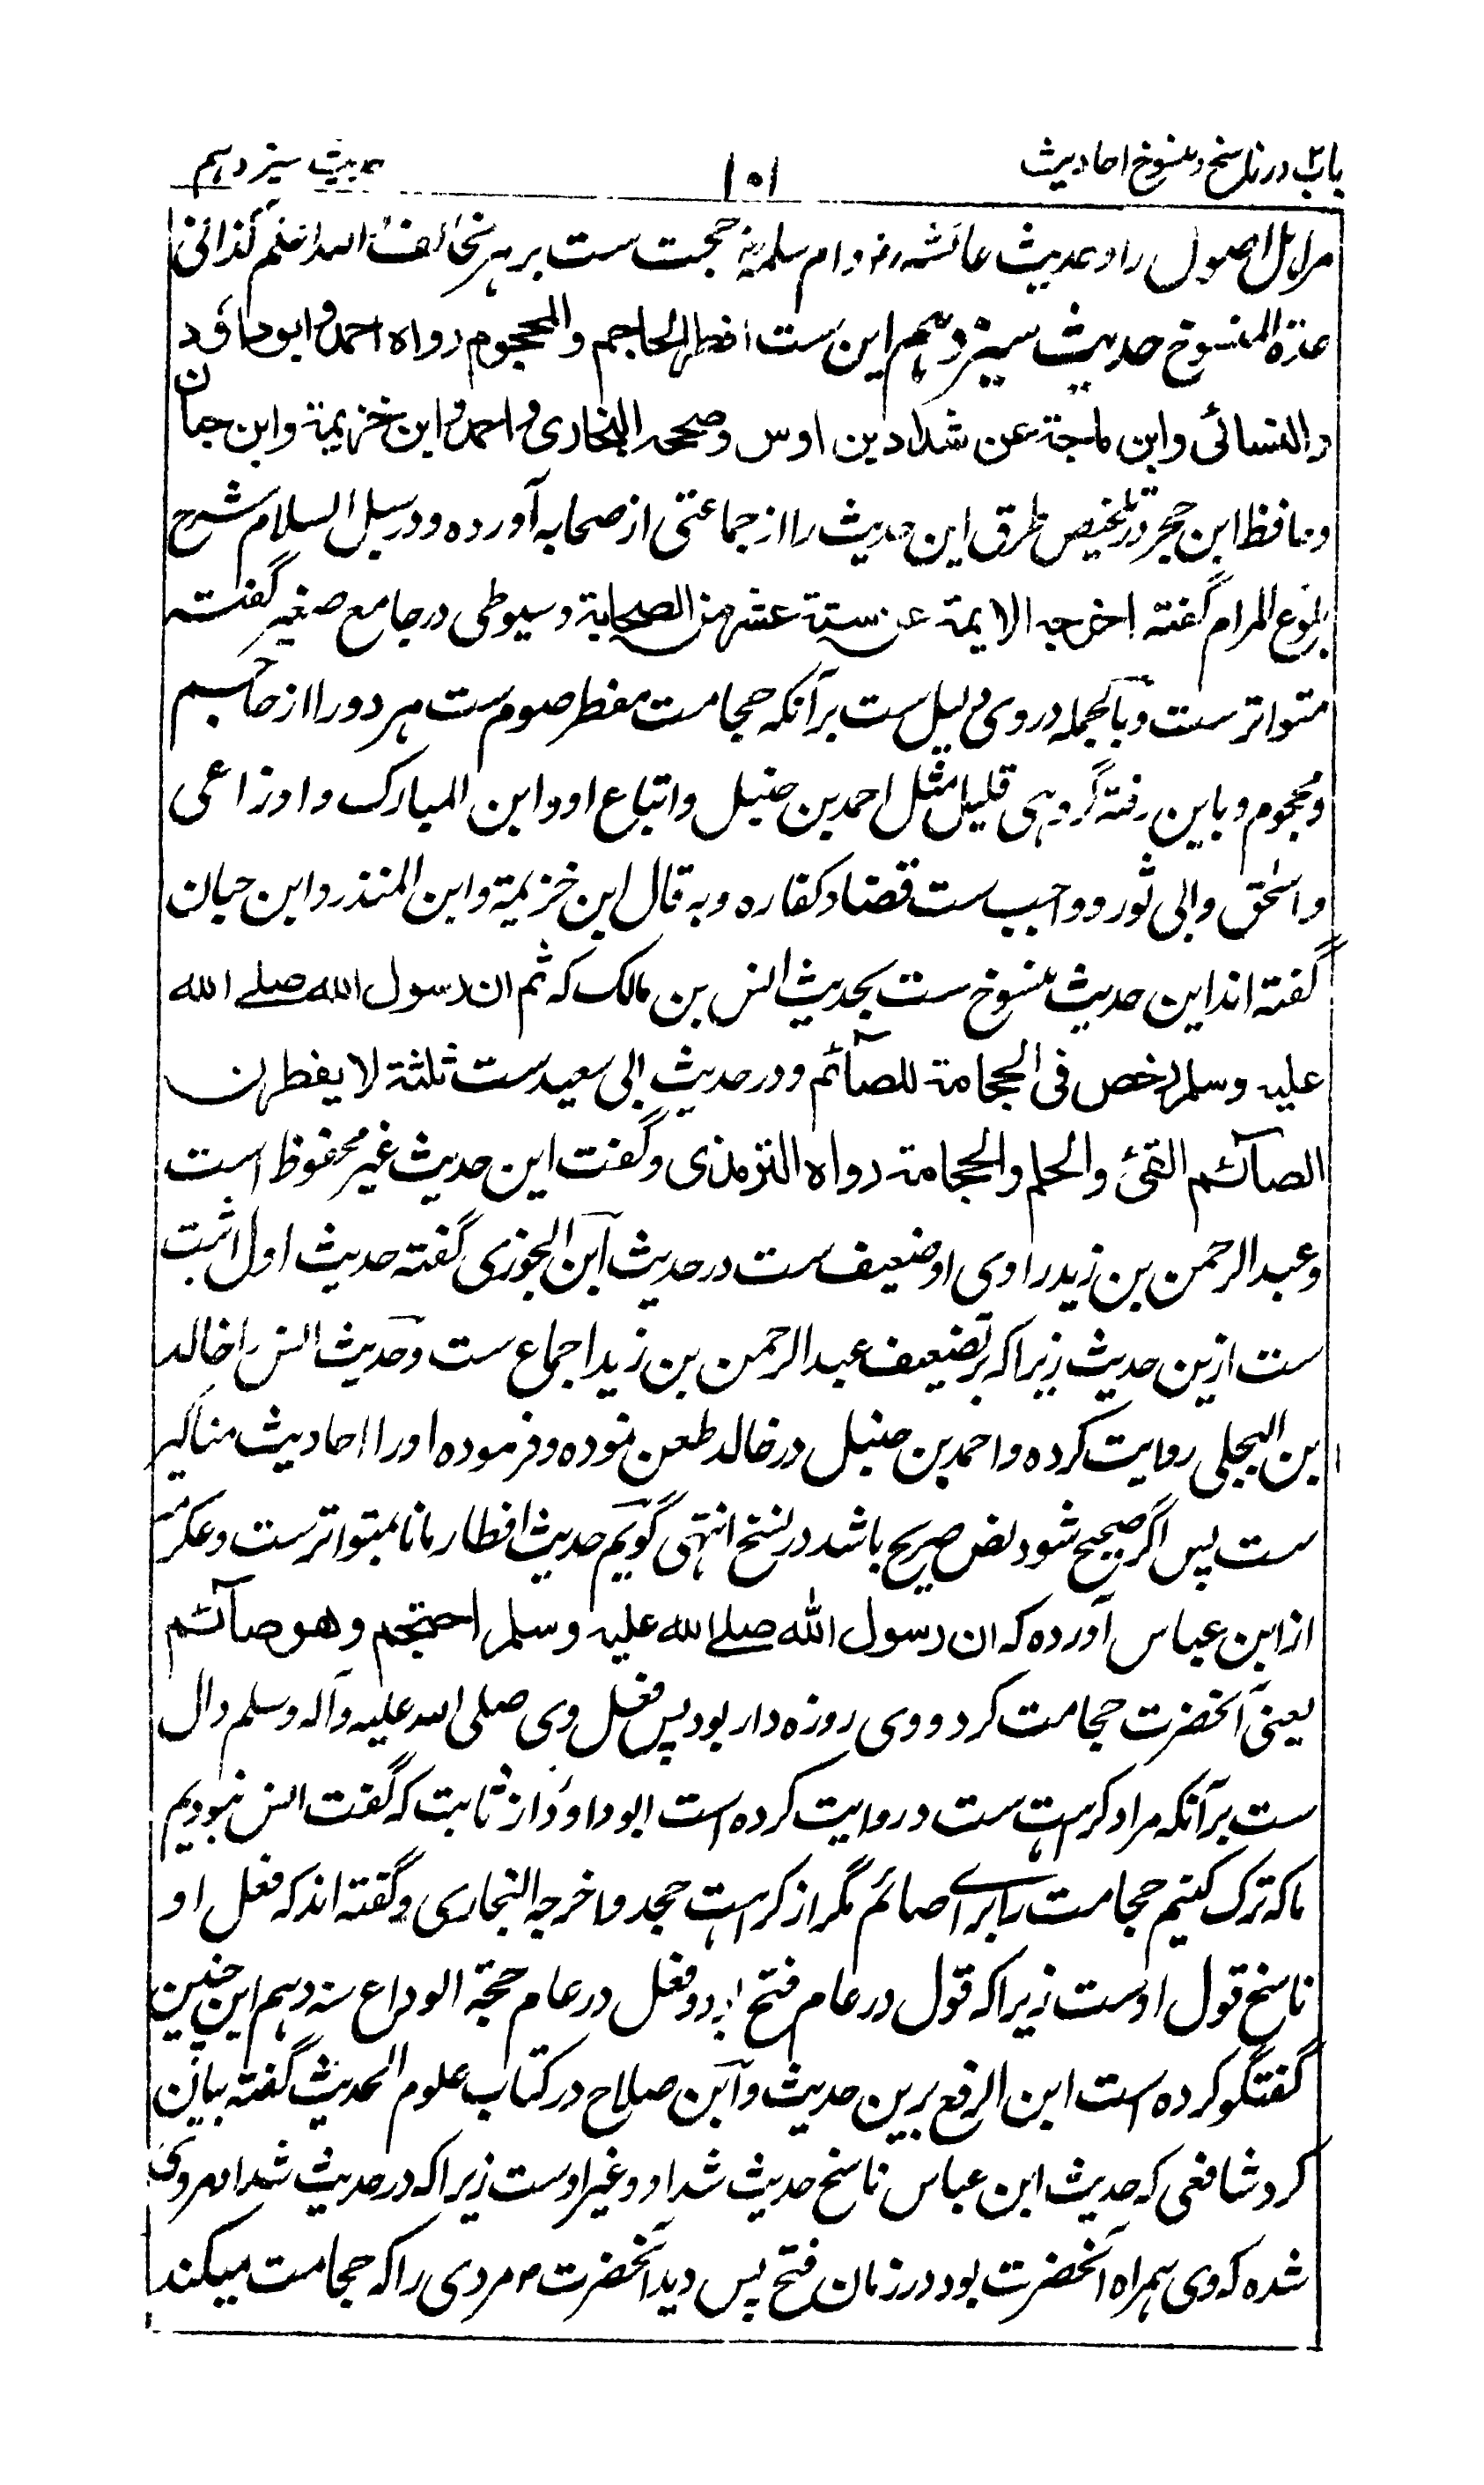 باب در ناسخ و منسوخ احادیث
۱۰۱
حدیث سیزدهم
مر اہل اصول را و حدیث عائشہ رض و ام سلمہ رض حجت ست بر ہر مخالف واللہ اعلم کذا فی
عدة المنسوخ حدیث سیزدہم این ست افطر الحاجم والمحجوم رواہ احمد وابو داؤد
والنسائی وابن ماجة عن شداد بن اوس وصححہ البخاری واحمد وابن خزیمة وابن حبان
وحافظ ابن حجر در تلخیص طرق این حدیث را از جماعتی از صحابہ آوردہ و در سبل السلام شرح
بلوغ المرام گفتہ اخرجہ الایمة عن ستة عشر من الصحابة وسیوطی در جامع صغیر گفتہ
متواتر ست و بالجملہ در وی دلیل ست بر آنکہ حجامت مفطر صوم ست ہر دو را از حاجم
و محجوم و باین رفتہ گروہی قلیل مثل احمد بن حنبل و اتباع او و ابن المبارک و اوزاعی
و اسحٰق و ابی ثور و واجب ست قضا و کفارہ و بہ قال ابن خزیمة و ابن المنذر و ابن حبان
گفتہ اند این حدیث منسوخ ست بحدیث انس بن مالک کہ ثم ان رسول اللہ صلے اللہ
علیہ وسلم رخص فی الحجامة للصآئم و در حدیث ابی سعید ست ثلثة لا یفطرن
الصآئم القئ والحلم والحجامة رواہ الترمذی و گفت این حدیث غیر محفوظ است
و عبد الرحمن بن زید راوی او ضعیف ست در حدیث ابن الجوزی گفتہ حدیث اول اثبت
ست ازین حدیث زیرا کہ بر تضعیف عبد الرحمن بن زید اجماع ست و حدیث انس را خالد
بن البجلی روایت کردہ و احمد بن حنبل در خالد طعن نمودہ و فرمودہ او را احادیث مناکیر
ست پس اگر صحیح شود نص صریح باشد در نسخ انتہی گویم حدیث افطار مانا بمتواتر ست و عکرمہ
از ابن عباس آوردہ کہ ان رسول اللہ صلے اللہ علیہ وسلم احتجم وھو صآئم
یعنی آنحضرت حجامت کرد و وی روزہ دار بود پس فعل وی صلی اللہ علیہ وآلہ وسلم دال
ست بر آنکہ مراد کراہت ست و روایت کردہ است ابو داؤد از ثابت کہ گفت انس نبودیم
ما کہ ترک کنیم حجامت را برای صائم مگر از کراہت جہد و اخرجہ البخاری و گفتہ اند کہ فعل او
ناسخ قول اوست زیرا کہ قول در عام فتح بود و فعل در عام حجة الوداع سنہ دہم این چنین
گفتگو کردہ است ابن الرفع برین حدیث و ابن صلاح در کتاب علوم الحدیث گفتہ بیان
کرد شافعی کہ حدیث ابن عباس ناسخ حدیث شداد و غیر اوست زیرا کہ در حدیث شداد مروی
شدہ کہ وی ہمراہ آنحضرت بود در زمان فتح پس دید آنحضرت مردی را کہ حجامت میکند